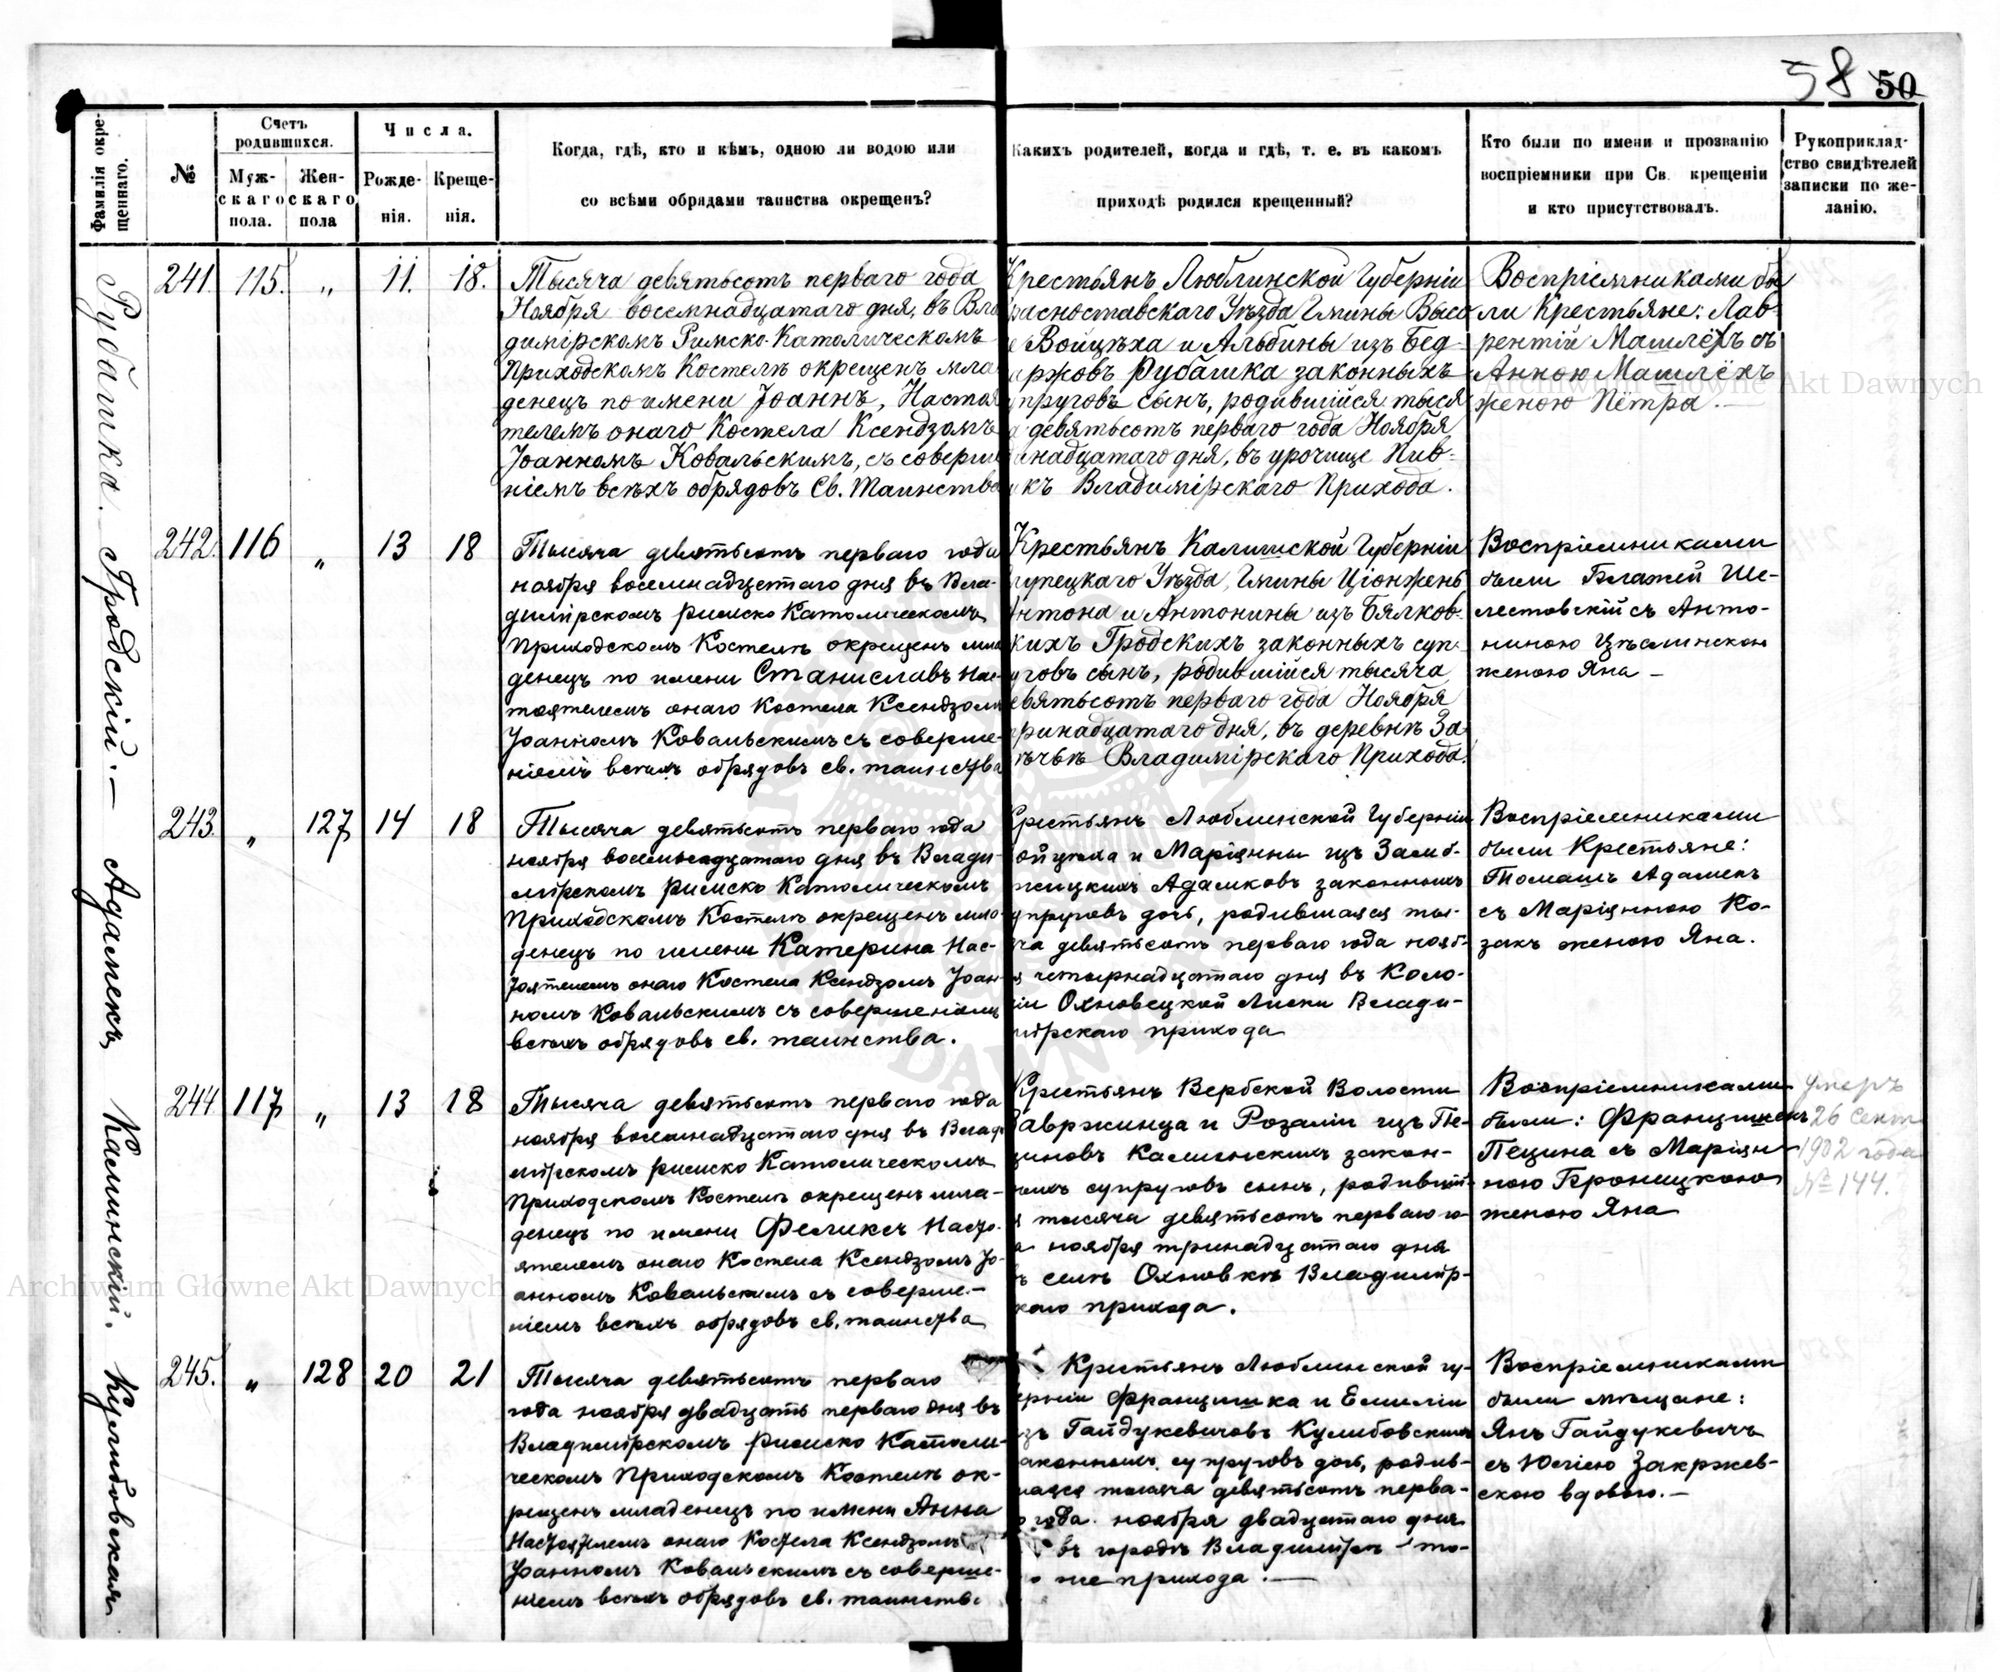 58 50
Фамилія окре-
щеннаго.
№
Счетъ
родившихся.
Муж-
скаго
пола.
Жен-
скаго
пола
Числа.
Рожде-
нія.
Креще-
нія.
Когда, гдѣ, кто и кѣмъ, одною ли водою или
со всѣми обрядами таинства окрещенъ?
Какихъ родителей, когда и гдѣ, т. е. въ какомъ
приходѣ родился крещенный?
Кто были по имени и прозванію
воспріемники при Св. крещеніи
и кто присутствовалъ.
Рукоприклад-
ство свидѣтелей
записки по же-
ланію.
Рубашка.
241. 115. „ 11. 18.
Тысяча девятьсотъ перваго года
Ноября восемнадцатаго дня, въ Вла
димірскомъ Римско-Католическомъ
Приходскомъ Костелѣ окрещенъ мла
денецъ по имени Іоаннъ, Настоя
телемъ онаго Костела Ксендзомъ
Іоанномъ Ковальскимъ, съ соверше
ніемъ всѣхъ обрядовъ Св. Таинства
Крестьянъ Люблинской Губерніи
расноставскаго Уѣзда Гмины Высо
е Войцѣха и Альбины изъ Бед-
аржовъ Рубашка законныхъ
упруговъ сынъ, родившійся тыся
а девятьсотъ перваго года Ноября
инадцатаго дня, въ урочище Пив-
икъ Владимірскаго Прихода.
Воспріемниками бы
ли Крестьяне: Лав-
рентій Машлёхъ съ
Анною Машлёхъ
женою Пётра.—
Гродскій.—
242. 116 „ 13 18
Тысяча девятьсотъ перваго года
ноября восемнадцатаго дня въ Вла-
димірскомъ римско Католическомъ
Приходскомъ Костелѣ окрещенъ мла
денецъ по имени Станиславъ Нас-
тоятелемъ онаго Костела Ксендзомъ
Іоанномъ Ковальскимъ съ соверше-
ніемъ всѣхъ обрядовъ св. таинства
Крестьянъ Калишской Губерніи
лупецкаго Уѣзда, Гмины Ціонжень
Антона и Антонины изъ Бялков-
кихъ Гродскихъ законныхъ суп-
уговъ сынъ, родившійся тысяча
евятьсотъ перваго года Ноября
ринадцатаго дня, въ деревнѣ За
ѣчьѣ Владимірскаго Прихода.
Воспріемниками
были Блажей Ше-
лестовскій съ Анто-
ниною Цѣлинскою
женою Яна —
Адамекъ
243. „ 127 14 18
Тысяча девятьсотъ перваго года
ноября восемнадцатаго дня въ Влади-
мірскомъ римско Католическомъ
Приходскомъ Костелѣ окрещенъ мла-
денецъ по имени Катерина Нас-
тоятелемъ онаго Костела Ксендзомъ Іоан-
номъ Ковальскимъ съ совершеніемъ
всѣхъ обрядовъ св. таинства.
Крестьянъ Люблинской Губерніи
ойцѣха и Маріянны изъ Замб-
жицкихъ Адамковъ законныхъ
упруговъ дочь, родившаяся ты-
ча девятьсотъ перваго года нояб-
я четырнадцатаго дня въ Коло-
іи Охновецкой Лиски Влади-
мірскаго прихода
Воспріемниками
были Крестьяне:
Томашъ Адамекъ
съ Маріянною Ко-
закъ женою Яна.
Каминскій.
244 117 „ 13 18
Тысяча девятьсотъ перваго года
ноября восемнадцатаго дня въ Влади
мірскомъ римско Католическомъ
Приходскомъ Костелѣ окрещенъ мла-
денецъ по имени Феликсъ Насто-
ятелемъ онаго Костела Ксендзомъ Іо-
анномъ Ковальскимъ съ соверше-
ніемъ всѣхъ обрядовъ св. таинства
Крестьянъ Вербской Волости
Вавржинца и Розаліи изъ Пе-
циновъ Каминскихъ закон-
ныхъ супруговъ сынъ, родивші-
я тысяча девятьсотъ перваго го-
а ноября тринадцатаго дня
ъ селѣ Охновкѣ Владимір-
каго прихода.
Воспріемниками
были: Францишекъ
Пецина съ Маріян-
ною Броницкою
женою Яна
Умеръ
26 Сент
1902 года
№ 144.
Кулибовская
245. „ 128 20 21
Тысяча девятьсотъ перваго
года ноября двадцать перваго дня въ
Владимірскомъ римско Католи-
ческомъ Приходскомъ Костелѣ ок-
рещенъ младенецъ по имени Анна
Настоятелемъ онаго Костела Ксендзомъ
Іоанномъ Ковальскимъ съ соверше-
ніемъ всѣхъ обрядовъ св. таинства
Крестьянъ Люблинской гу-
ерніи Францишка и Емиліи
зъ Гайдукевичовъ Кулибовскихъ
аконныхъ супруговъ дочь, родив-
аяся тысяча девятьсотъ перва-
о года ноября двадцатаго дня
въ городѣ Владимірѣ — то-
о же прихода.—
Воспріемниками
были мѣщане:
Янъ Гайдукевичъ
съ Юліею Закржев-
скою вдовою.—
Archiwum Główne Akt Dawnych
Archiwum Główne Akt Dawnych